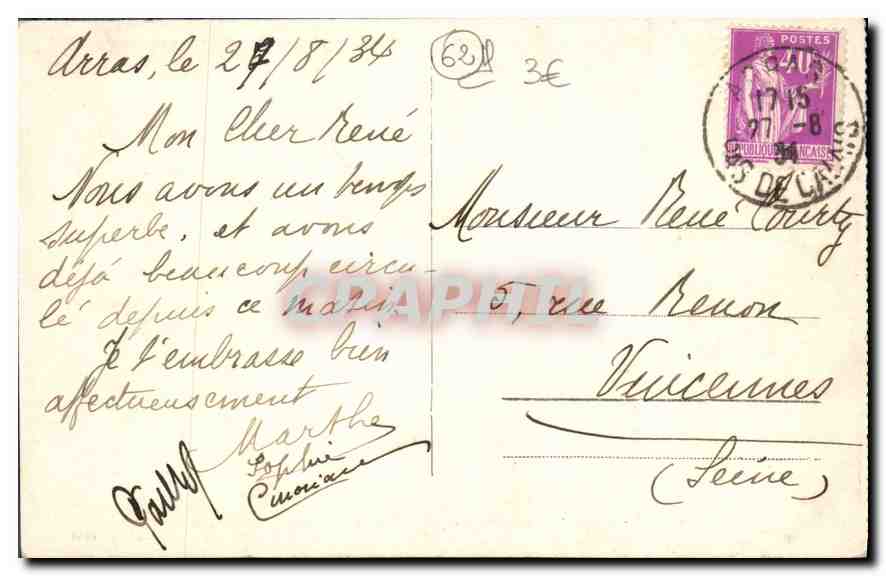 Arras, le 27/8/34
Mon Cher René
Nous avons un temps
superbe, et avons
déjà beaucoup circu-
lé depuis ce matin.
Je t'embrasse bien
affectueusement
Marthe
Sophie
62
3€
POSTES
40
RÉPUBLIQUE FRANÇAISE
ARRAS
17 15
27 -8
34
PAS DE CALAIS
Monsieur René Courty
5, rue Renon
Vincennes
(Seine)
CPAPHIL